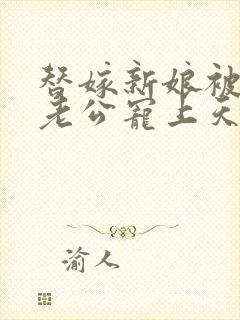 替嫁新娘被
老公宠上天
渝人